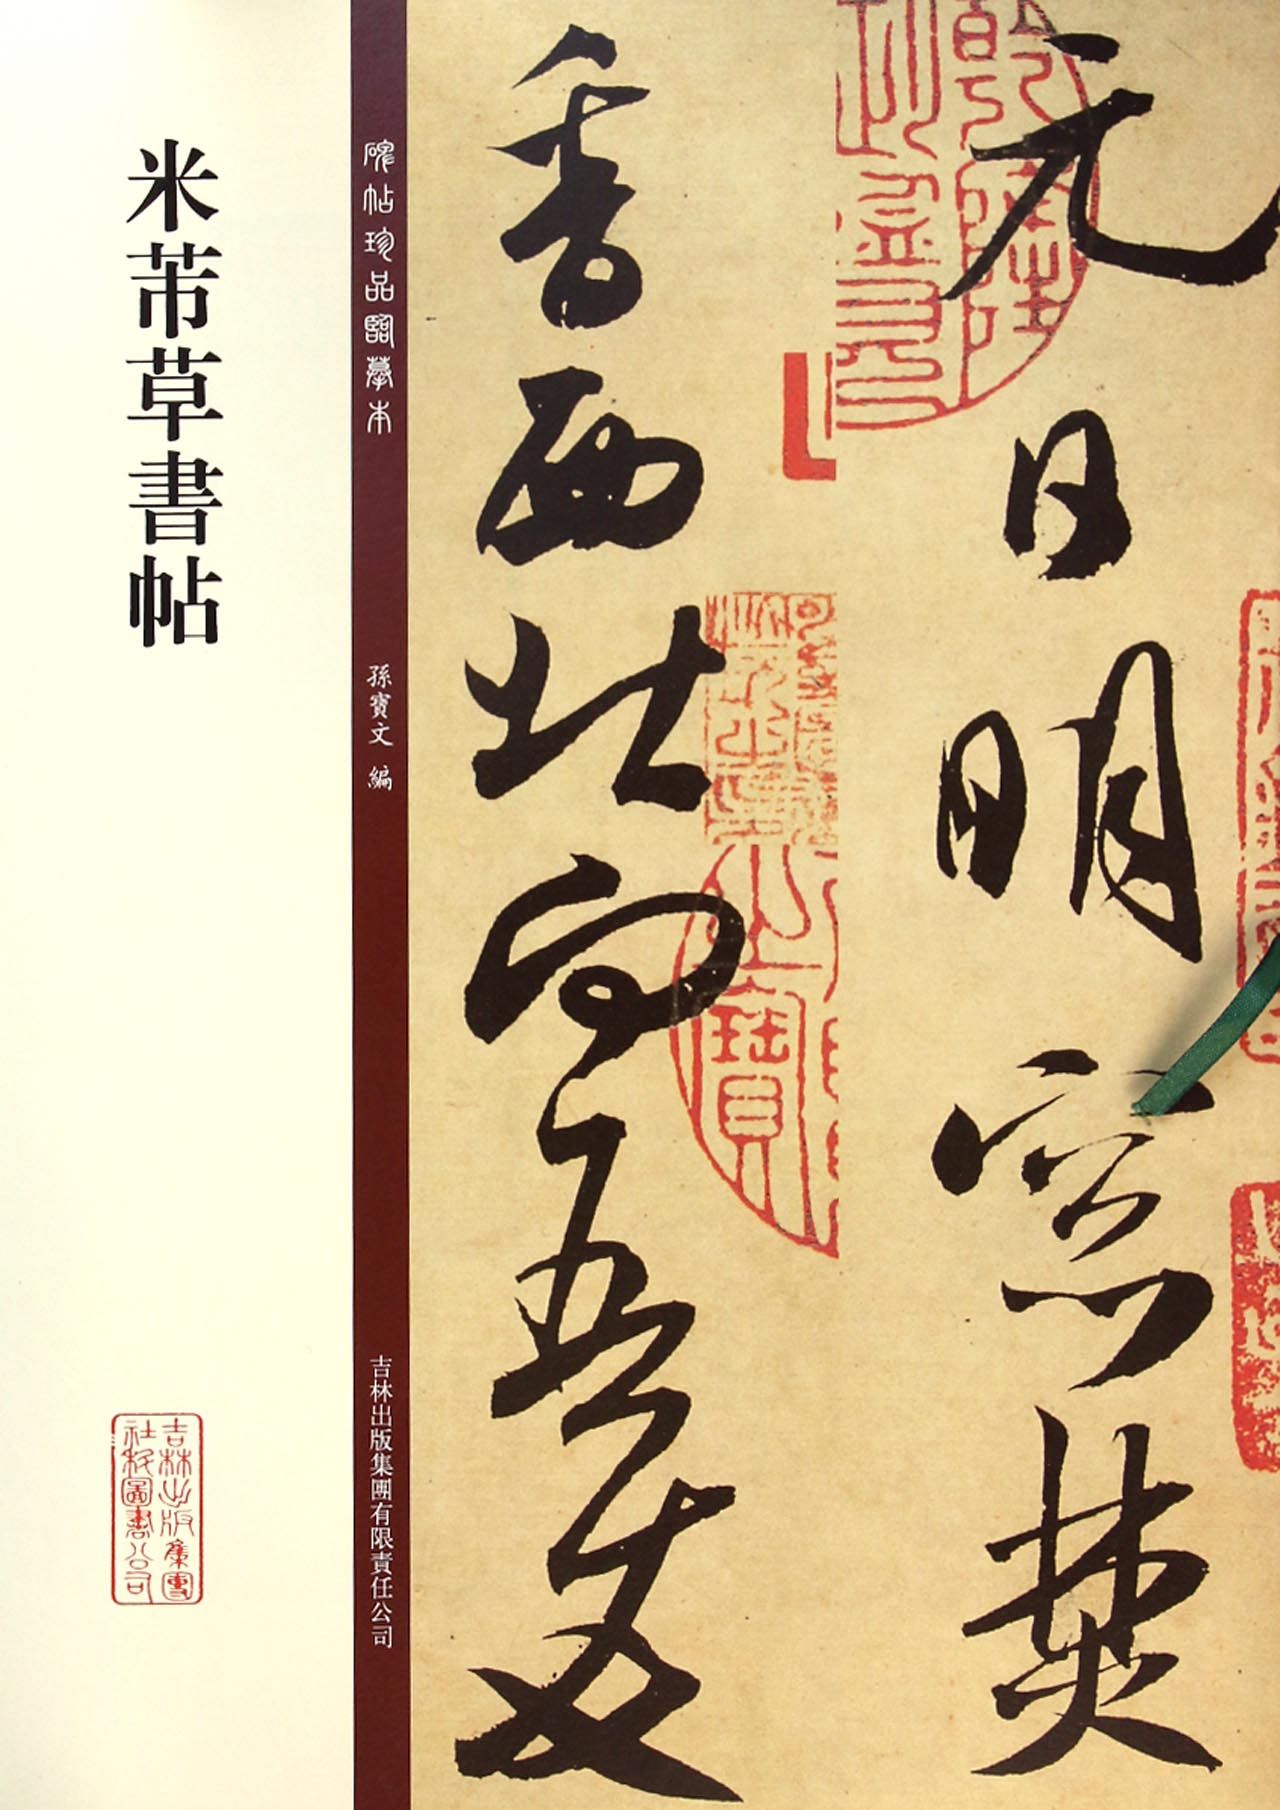 元日明窓焚
香西北向吾友
碑帖珍品臨摹本
孫寶文 編
吉林出版集團有限責任公司
米芾草書帖
吉林出版集團
社科圖書公司